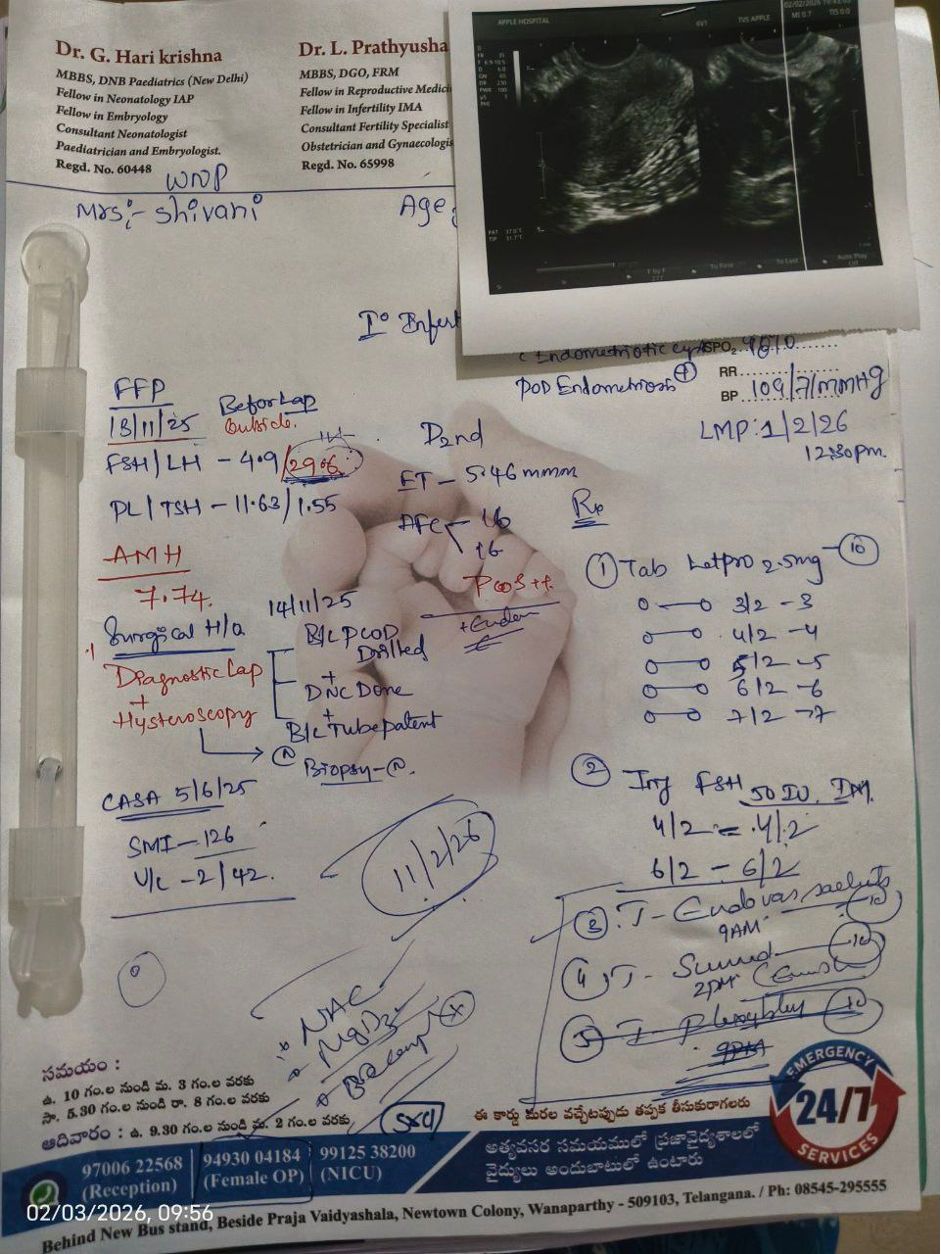 Dr. G. Hari krishna
MBBS, DNB Paediatrics (New Delhi)
Fellow in Neonatology IAP
Fellow in Embryology
Consultant Neonatologist
Paediatrician and Embryologist.
Regd. No. 60448
Dr. L. Prathyusha
MBBS, DGO, FRM
Fellow in Reproductive Medici
Fellow in Infertility IMA
Consultant Fertility Specialist
Obstetrician and Gynaecologis
Regd. No. 65998
APPLE HOSPITAL
6V1
TVS APPLE
02/02/2026
MI 0.7
TIS 0.0
WNP
Mrs:- Shivani
Age:
I° Infert
Endometriotic cyst
SPO2
POD Endometriosis +
RR
BP 109/71 mmHg
LMP: 1/2/26
12:30pm.
FFP
13/11/25
Befor Lap
Outside.
FSH/LH - 4.9/29.6
PL/TSH - 11.63/1.55
AMH
7.74.
D2nd
ET - 5.46 mmm
AFC - 16
16
PCOS ++
Surgical H/o
14/11/25
Diagnostic Lap
+
Hysteroscopy
B/L PCOD
Drilled
+
DNC Done
+
B/L Tube patent
N
Biopsy - N.
CASA 5/6/25
SMI - 126
V/C - 2/42.
11/2/26
Rx
1 Tab Letpro 2.5mg - 10
3/2 - 3
4/2 - 4
5/2 - 5
6/2 - 6
7/2 - 7
2 Inj FSH 50 IU. IM.
4/2 - 4/2
6/2 - 6/2
3. T- sachets 10
9AM
4 T- 10
2PM
5 T- 10
9PM
NAC
సమయం :
ఉ. 10 గం.ల నుండి మ. 3 గం.ల వరకు
సా. 5.30 గం.ల నుండి రా. 8 గం.ల వరకు
ఆదివారం : ఉ. 9.30 గం.ల నుండి మ. 2 గం.ల వరకు
ఈ కార్డు మరల వచ్చేటప్పుడు తప్పక తీసుకురాగలరు
EMERGENCY
24/7
SERVICES
97006 22568
(Reception)
94930 04184
(Female OP)
99125 38200
(NICU)
అత్యవసర సమయములో ప్రజావైద్యశాలలో
వైద్యులు అందుబాటులో ఉంటారు
02/03/2026, 09:56
Behind New Bus stand, Beside Praja Vaidyashala, Newtown Colony, Wanaparthy - 509103, Telangana. / Ph: 08545-295555